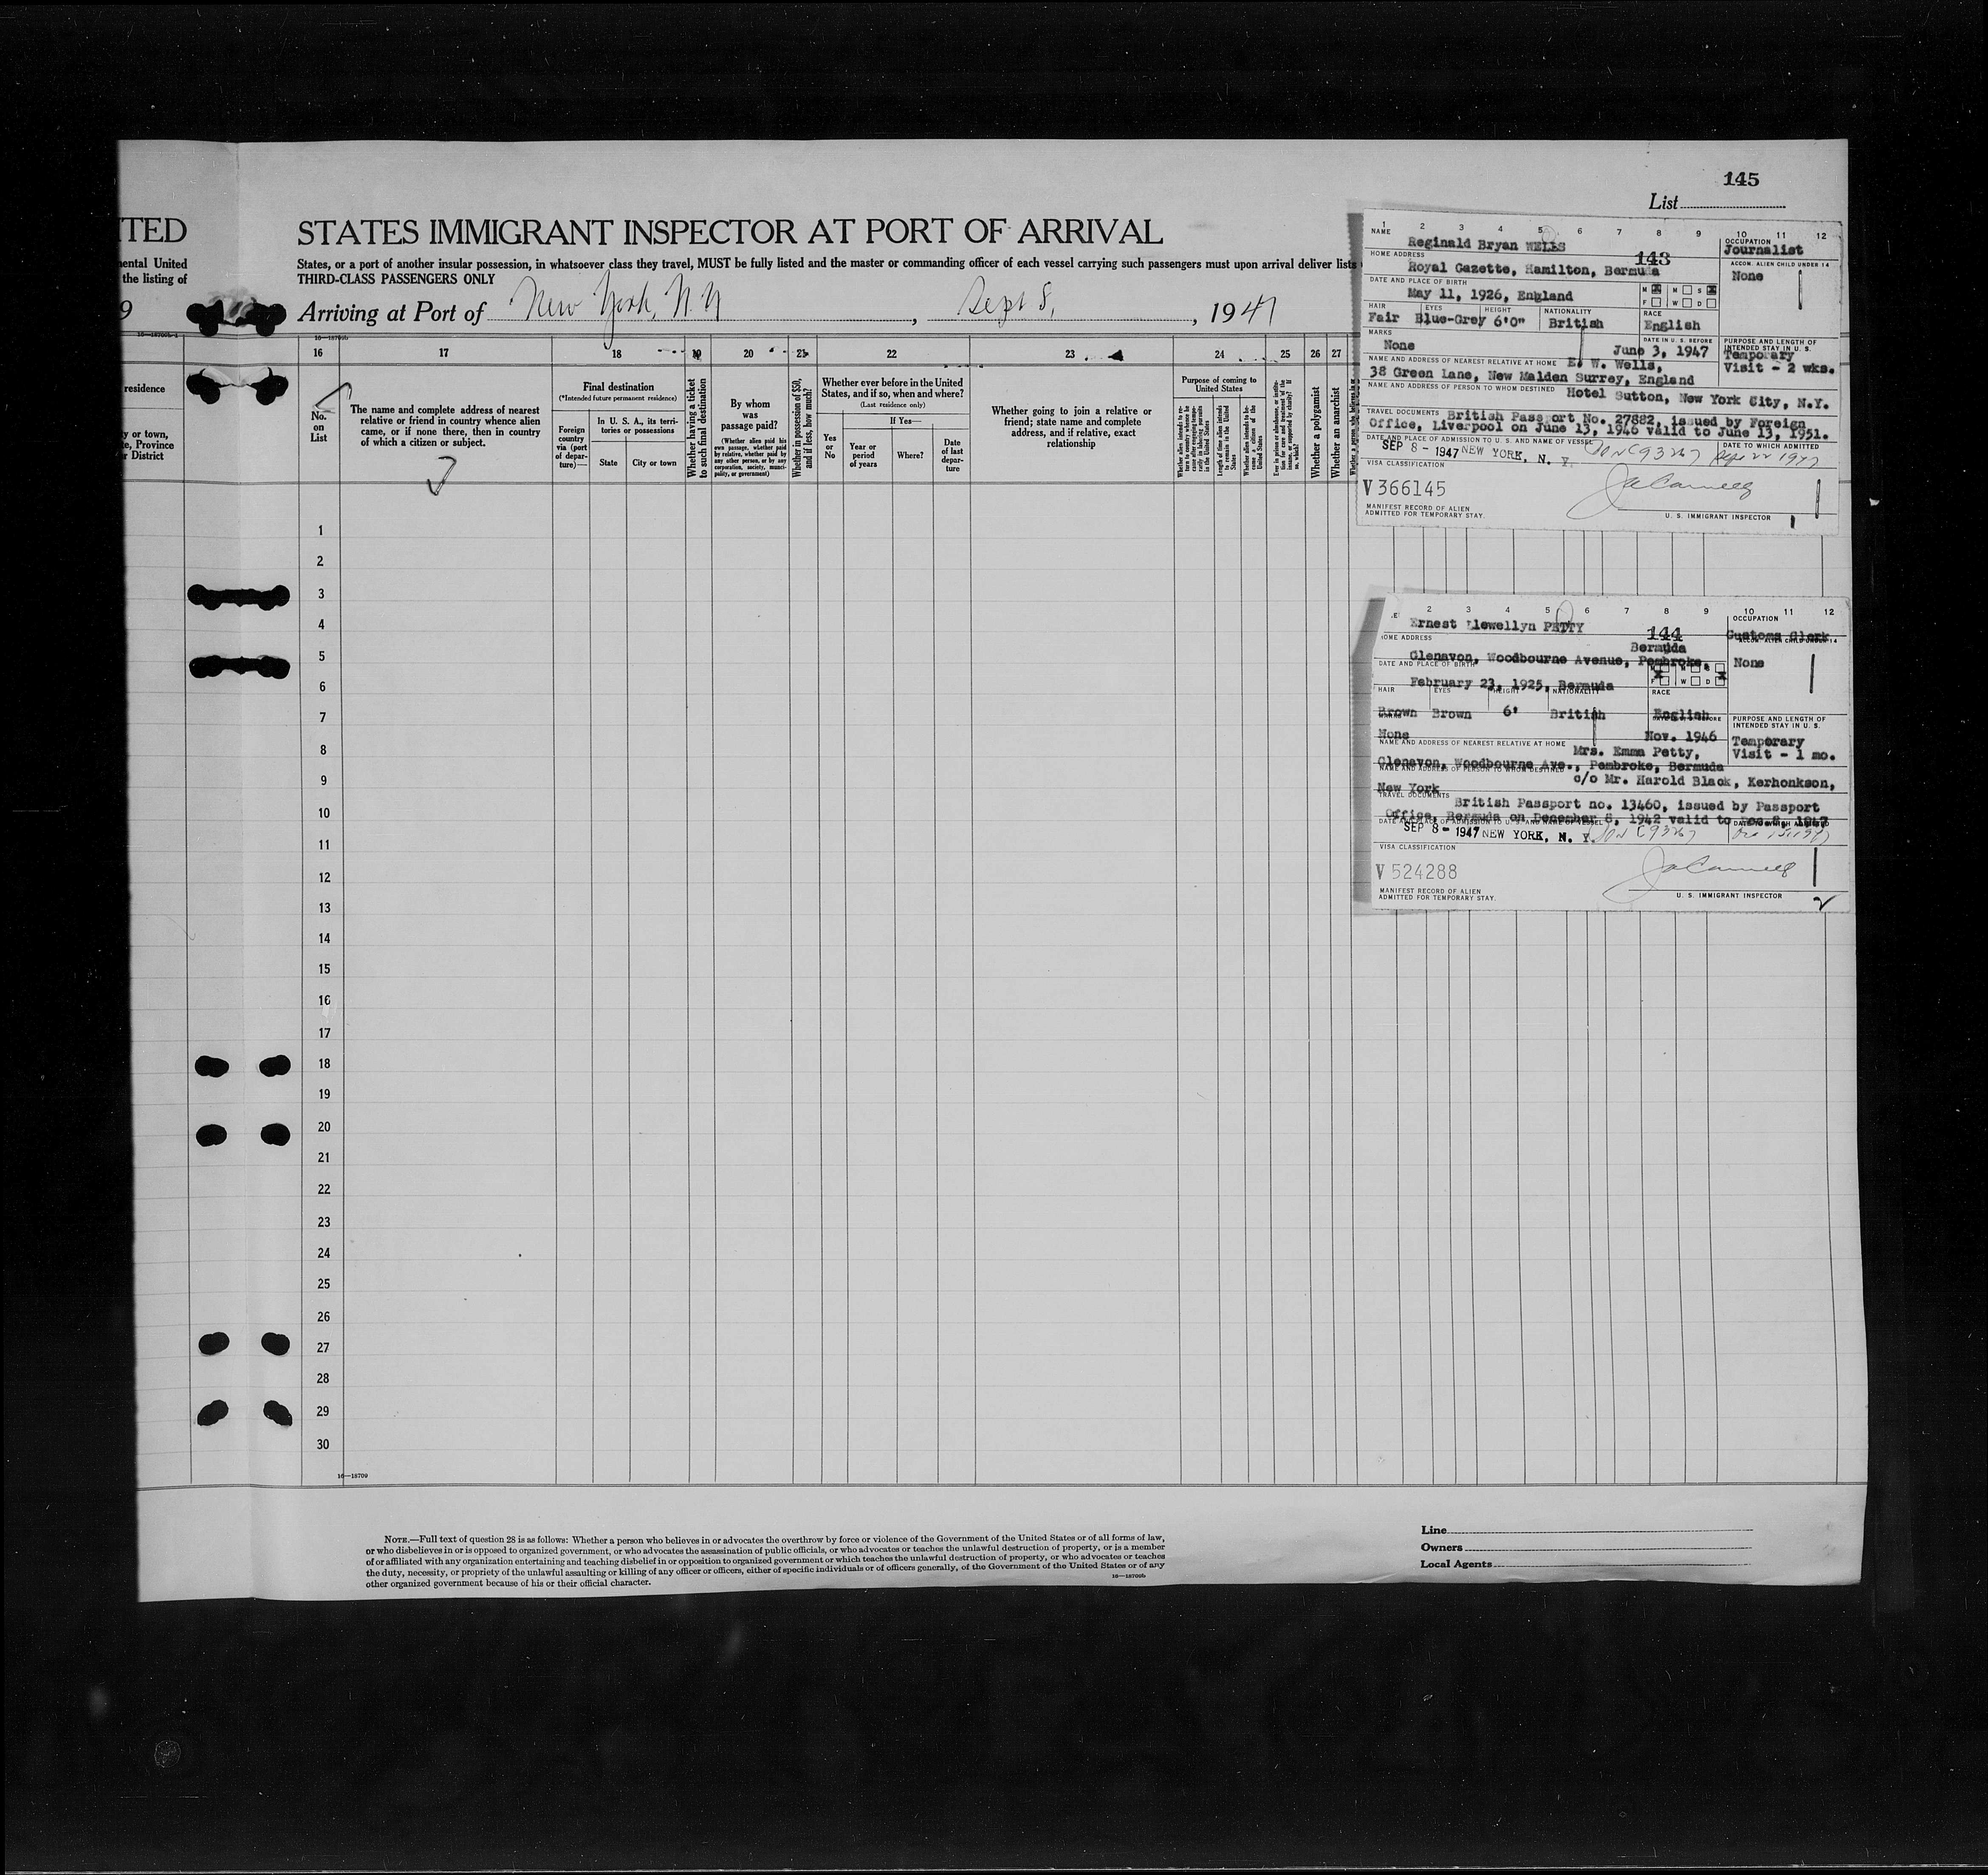 145
List
ITED
STATES IMMIGRANT INSPECTOR AT PORT OF ARRIVAL
ental United
the listing of
States, or a port of another insular possession, in whatsoever class they travel, MUST be fully listed and the master or commanding officer of each vessel carrying such passengers must upon arrival deliver lists
THIRD-CLASS PASSENGERS ONLY
9
Arriving at Port of New York, N.Y, Sept 8, 1947
16 17 18 19 20 21 22 23 24 25 26 27
residence
y or town,
te, Province
r District
No. on List
The name and complete address of nearest
relative or friend in country whence alien
came, or if none there, then in country
of which a citizen or subject.
Final destination
(*Intended future permanent residence)
Foreign
country
via (port
of depar-
ture)—
In U. S. A., its terri-
tories or possessions
State
City or town
Whether having a ticket
to such final destination
By whom
was
passage paid?
(Whether alien paid his
own passage, whether paid
by relative, whether paid by
any other person, or by any
corporation, society, munici-
pality, or government)
Whether in possession of $50,
and if less, how much?
Whether ever before in the United
States, and if so, when and where?
(Last residence only)
Yes
or
No
If Yes—
Year or
period
of years
Where?
Date
of last
depar-
ture
Whether going to join a relative or
friend; state name and complete
address, and if relative, exact
relationship
Purpose of coming to
United States
Length of time alien intends
to remain in the United
States
Whether a polygamist
Whether an anarchist
1
2
3
4
5
6
7
8
9
10
11
12
13
14
15
16
17
18
19
20
21
22
23
24
25
26
27
28
29
30
16—18709
1 2 3 4 5 6 7 8 9 10 11 12
NAME
Reginald Bryan WELLS
143
OCCUPATION
Journalist
HOME ADDRESS
Royal Gazette, Hamilton, Bermuda
ACCOM. ALIEN CHILD UNDER 14
None
DATE AND PLACE OF BIRTH
May 11, 1926, England
M M S
F W D
HAIR EYES HEIGHT NATIONALITY RACE
Fair Blue-Grey 6'0" British English
MARKS
None
DATE IN U. S. BEFORE
June 3, 1947
PURPOSE AND LENGTH OF
INTENDED STAY IN U. S.
Temporary
Visit - 2 wks.
NAME AND ADDRESS OF NEAREST RELATIVE AT HOME E. W. Wells,
38 Green Lane, New Malden Surrey, England
NAME AND ADDRESS OF PERSON TO WHOM DESTINED
Hotel Sutton, New York City, N.Y.
TRAVEL DOCUMENTS British Passport No. 27882, issued by Foreign
Office, Liverpool on June 13, 1946 valid to June 13, 1951.
DATE AND PLACE OF ADMISSION TO U. S. AND NAME OF VESSEL
DATE TO WHICH ADMITTED
SEP 8 - 1947 NEW YORK, N. Y. Sept 22 1947
VISA CLASSIFICATION
V 366145
MANIFEST RECORD OF ALIEN
ADMITTED FOR TEMPORARY STAY.
U. S. IMMIGRANT INSPECTOR
1
2 3 4 5 6 7 8 9 10 11 12
E
Ernest Llewellyn PETTY
144
OCCUPATION
Customs Clerk
HOME ADDRESS
Bermuda
Glenavon, Woodbourne Avenue, Pembroke,
ACCOM. ALIEN CHILD UNDER 14
None
DATE AND PLACE OF BIRTH
February 23, 1925, Bermuda
F W D
HAIR EYES HEIGHT NATIONALITY RACE
Brown Brown 6' British English
None
Nov. 1946
PURPOSE AND LENGTH OF
INTENDED STAY IN U. S.
Temporary
Visit - 1 mo.
NAME AND ADDRESS OF NEAREST RELATIVE AT HOME
Mrs. Emma Petty,
Glenavon, Woodbourne Ave., Pembroke, Bermuda
NAME AND ADDRESS OF PERSON TO WHOM DESTINED
c/o Mr. Harold Black, Kerhonkson,
New York
TRAVEL DOCUMENTS
British Passport no. 13460, issued by Passport
Office, Bermuda on December 8, 1942 valid to Dec. 8, 1947
SEP 8 - 1947 NEW YORK, N. Y.
VISA CLASSIFICATION
V 524288
MANIFEST RECORD OF ALIEN
ADMITTED FOR TEMPORARY STAY.
U. S. IMMIGRANT INSPECTOR
2
NOTE.—Full text of question 28 is as follows: Whether a person who believes in or advocates the overthrow by force or violence of the Government of the United States or of all forms of law,
or who disbelieves in or is opposed to organized government, or who advocates the assassination of public officials, or who advocates or teaches the unlawful destruction of property, or is a member
of or affiliated with any organization entertaining and teaching disbelief in or opposition to organized government or which teaches the unlawful destruction of property, or who advocates or teaches
the duty, necessity, or propriety of the unlawful assaulting or killing of any officer or officers, either of specific individuals or of officers generally, of the Government of the United States or of any
other organized government because of his or their official character.
16—18709b
Line
Owners
Local Agents